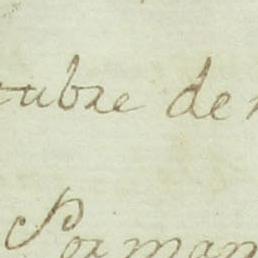 tubre de
Por man